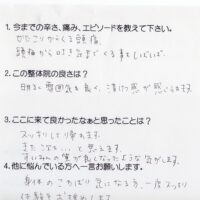 1. 今までの辛さ、痛み、エピソードを教えて下さい。
かたこりからくる頭痛。
頭痛から吐き気までくる事もしばしば。
2. この整体院の良さは？
明るい雰囲気も良く、清潔感が感じられます。
3. ここに来て良かったなぁと思ったことは？
スッキリして帰れます。
また次も…と思えます。
すいみんの質が良くなったような気がします。
4. 他に悩んでいる方へ一言お願いします。
身体のこわばり気になる方、一度スッキリ
体験をお奨めします